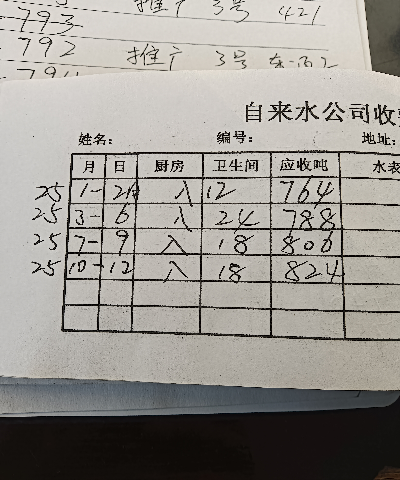 793
792 推广 3号 东-西2
推广 3号 421
自来水公司收
姓名: 编号: 地址:
月 日 厨房 卫生间 应收吨 水表
25 1- 入 12 764
25 3- 6 入 24 788
25 7- 9 入 18 806
25 10- 12 入 18 824